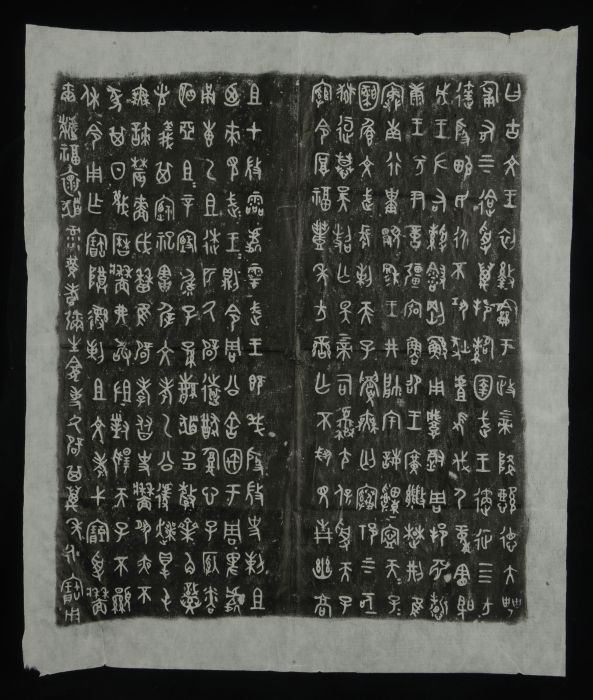 曰古文王初龢于政上帝降懿德大甹
匍有上下迨受萬邦圉武王遹征四方
達殷畯民永不巩狄虘伐尸童憲聖
成王左右剛鯀用肇徹周邦淵哲
康王兮尹億疆宏魯卲王廣楚荊隹
南行祗穆王井帥宇誨申寧天子天子
文武長剌天子眉無匄上下亟
桓慕昊亡斁上帝司保受天子
綰令厚福豐年方蠻亡不見青幽高
且才微霝處雩武王既殷微史剌且
迺來見武王武王則令周公舍宇于周卑處
甬叀乙且匹厥辟遠猷腹心子
明亞且且辛毓子孫繁多釐齊角
光義其禋祀文考乙公遽爽得屯
無諫農穡曆隹辟孝友史牆夙夜不
墜其日蔑曆牆弗敢沮對揚天子不顯
休令用乍寶尊彝剌且文考弋受牆
爾福懷彔黃耇彌生龕事厥辟其萬年永寶用